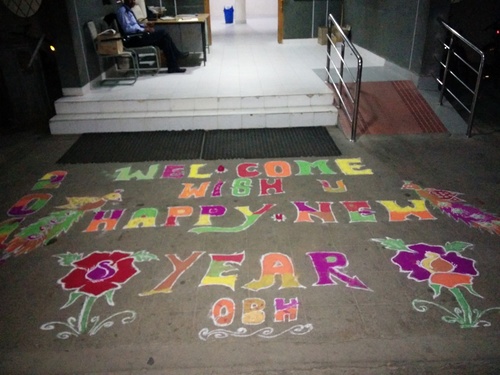 WELCOME
WISH U
HAPPY NEW
YEAR
OBH